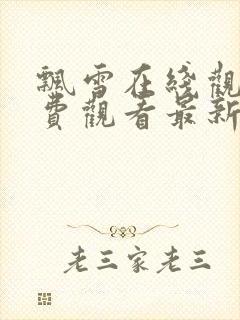 飄雪在綫觀
費觀看最新
老三家老三